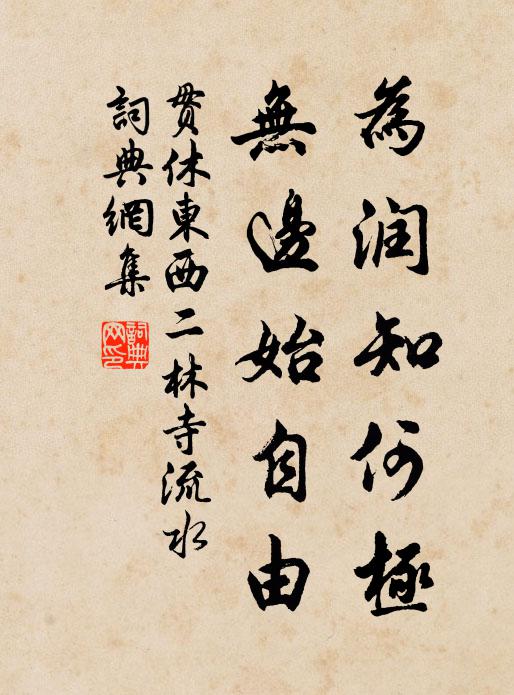 為润知何極
無邊始自由
貫休東西二林寺流水
詞典網集
詞典网印